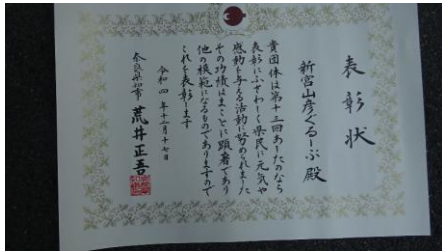 表彰状
新宮山彦ぐるーぷ殿
貴団体は第十三回あしたのなら
表彰にふさわしく県民に元気や
感動を与える活動に努められました
その功績はまことに顕著であり
他の模範になるものでありますので
これを表彰します
令和四年十二月十七日
奈良県知事 荒井正吾